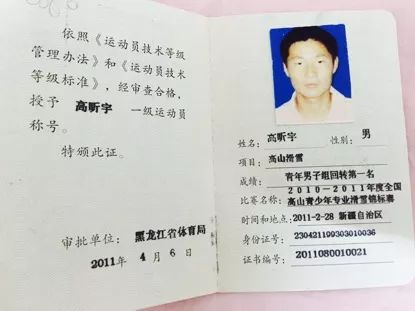 依照《运动员技术等级
管理办法》和《运动员技术
等级标准》，经审查合格，
授予 高昕宇 一级运动员
称号。
特颁此证。
审批单位：黑龙江省体育局
2011年 4月 6日
姓名：高昕宇 性别：男
项目：高山滑雪
成绩：青年男子组回转第一名
2010-2011年度全国
比赛名称：高山青少年专业滑雪锦标赛
时间和地点：2011-2-28 新疆自治区
身份证号：230421199303010036
证书编号：2011080010021